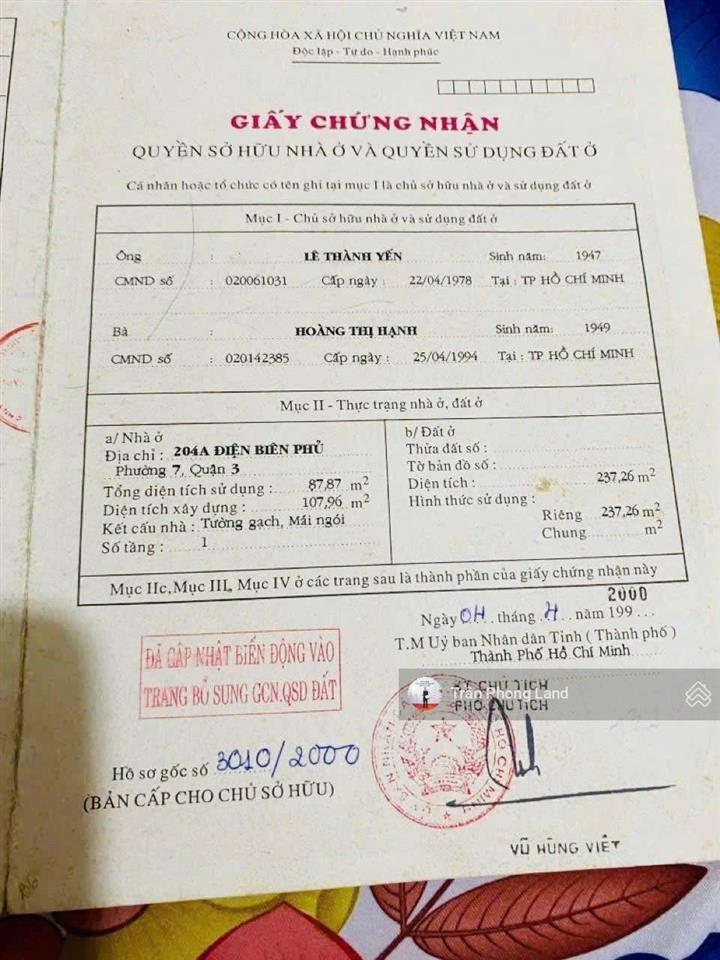 CỘNG HÒA XÃ HỘI CHỦ NGHĨA VIỆT NAM
Độc lập - Tự do - Hạnh phúc
GIẤY CHỨNG NHẬN
QUYỀN SỞ HỮU NHÀ Ở VÀ QUYỀN SỬ DỤNG ĐẤT Ở
Cá nhân hoặc tổ chức có tên ghi tại mục I là chủ sở hữu nhà ở và sử dụng đất ở
Mục I - Chủ sở hữu nhà ở và sử dụng đất ở
Ông : LÊ THÀNH YẾN Sinh năm: 1947
CMND số : 020061031 Cấp ngày : 22/04/1978 Tại : TP HỒ CHÍ MINH
Bà : HOÀNG THỊ HẠNH Sinh năm: 1949
CMND số : 020142385 Cấp ngày : 25/04/1994 Tại : TP HỒ CHÍ MINH
Mục II - Thực trạng nhà ở, đất ở
a/ Nhà ở
Địa chỉ : 204A ĐIỆN BIÊN PHỦ
Phường 7, Quận 3
Tổng diện tích sử dụng : 87,87 m²
Diện tích xây dựng : 107,96 m²
Kết cấu nhà : Tường gạch, Mái ngói
Số tầng : 1
b/ Đất ở
Thửa đất số :
Tờ bản đồ số :
Diện tích : 237,26 m²
Hình thức sử dụng :
Riêng 237,26 m²
Chung m²
Mục IIc, Mục III, Mục IV ở các trang sau là thành phần của giấy chứng nhận này
2000
Ngày 04 tháng 4 năm 199...
T.M Uỷ ban Nhân dân Tỉnh ( Thành phố )
Thành Phố Hồ Chí Minh
ĐÃ CẬP NHẬT BIẾN ĐỘNG VÀO
TRANG BỔ SUNG GCN.QSD ĐẤT
KT CHỦ TỊCH
PHÓ CHỦ TỊCH
Trần Phong Land
Hồ sơ gốc số 3010/2000
(BẢN CẤP CHO CHỦ SỞ HỮU)
VŨ HÙNG VIỆT